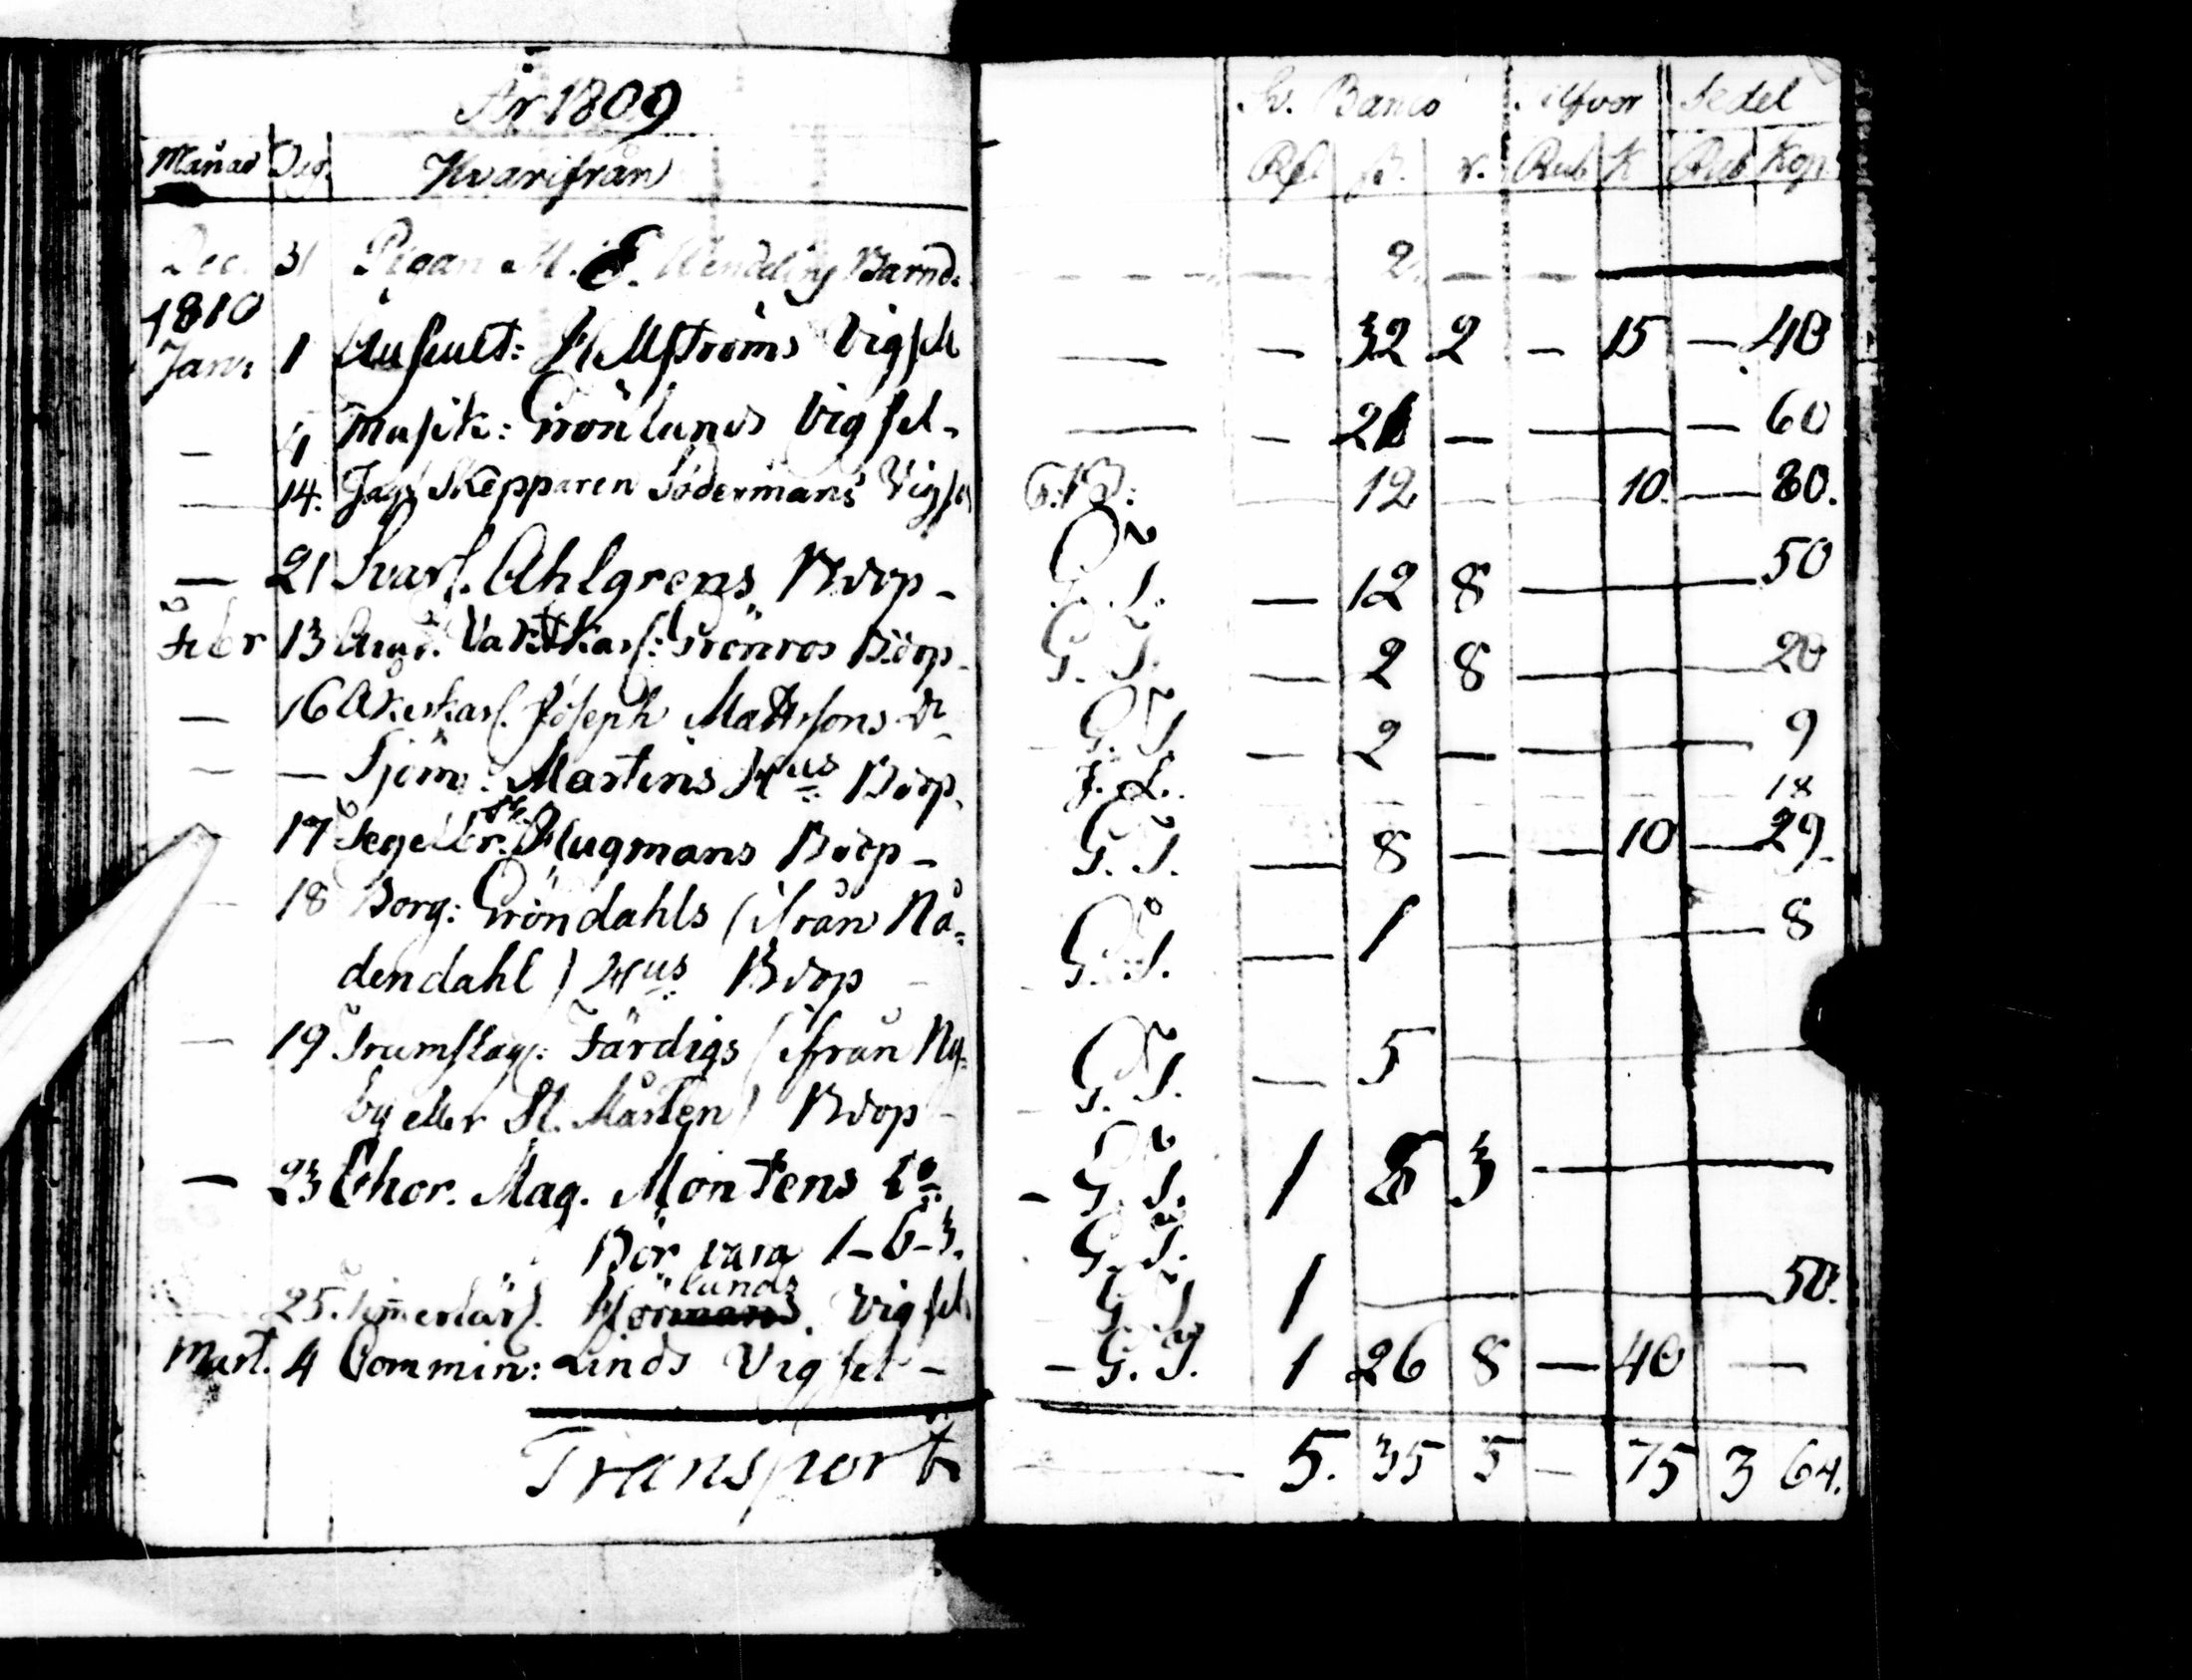 År 1809
Sv. Banco Silfver Sedel
Månad Dag. Hvarifrån Rd. ß. r. Rub K Rub Kop.
Dec. 31 Pigan M. E. Wendelins Barnd. 2. — —
1810
Jan: 1 Auscult: Hellströms Vigsel — — 32 2 — 15 — 40
— 4 Musik: Grönlunds Vigsel - — — — — — 60
— 14. Jagt Skepparen Södermans Vigsel G.B: — 12 — — 10. — 80.
— 21 Svarf. Ahlgrens Bdop - G. T. — 12 8 — — 50
Febr 13 Vakt Karl: Grönros Bdop - G. T. — 2 8 — — 20
— 16 Åkerkarl. Joseph Mattssons d:o G. T. — 2 — — — 9
— — Sjöm: Martins H:us Bdop. J. L. 18
17 Segell:r Hugmans Bdop - G. T. — 8 — — 10 — 29.
— 18 Borg: Gröndahls (ifrån Nå- 1 8
dendahl) H:us Bdop - G. T. —
— 19 Trumslag: Färdigs (ifrån Ny- 5
by eller St. Mårten) Bdop - G. T. —
— 23 Chor. Mag. Montens d:o - G. T. 1 8 3 —
Bör vara 1-6-3. G. T.
lunds
25. Timmerkarl. Vigsel G. T. 1 — 50.
Mart. 4 Commin: Linds Vigsel - - G. T. 1 26 8 — 40 —
Transport — 5. 35 5 — 75 3 64.